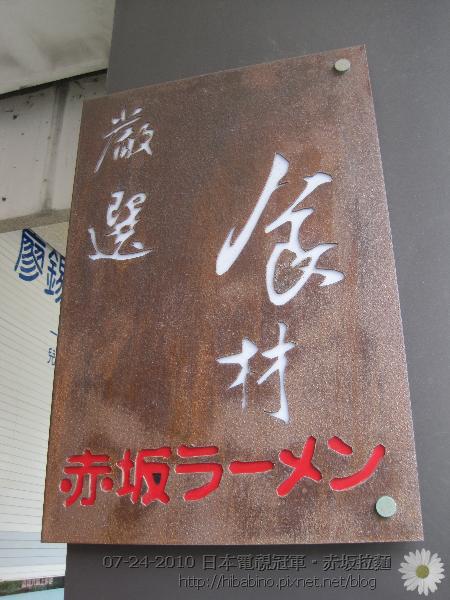 嚴選
食材
赤坂ラーメン
廖錫
一
兒
07-24-2010 日本電視冠軍·赤坂拉麵
http://hibabino.pixnet.net/blog